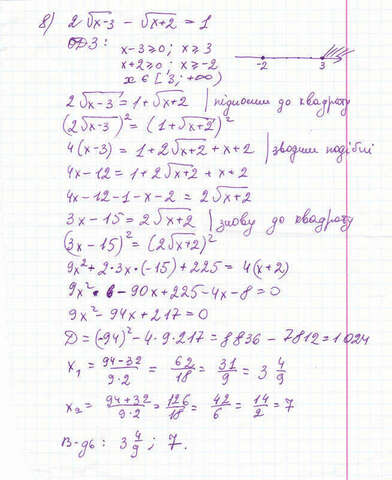 8) 2√x-3 - √x+2 = 1
ОДЗ:
x-3≥0; x≥3
x+2≥0; x≥-2
x∈[3; +∞)
-2 3
2√x-3 = 1+√x+2 | підносим до квадрату
(2√x-3)² = (1+√x+2)²
4(x-3) = 1+2√x+2 + x+2 | зводим подібні
4x-12 = 1+2√x+2 + x+2
4x-12-1-x-2 = 2√x+2
3x-15 = 2√x+2 | знову до квадрату
(3x-15)² = (2√x+2)²
9x²+2·3x·(-15)+225 = 4(x+2)
9x² - 90x+225-4x-8=0
9x² - 94x+217=0
D=(-94)²-4·9·217=8836-7812=1024
x₁ = 94-32/9·2 = 62/18 = 31/9 = 3 4/9
x₂ = 94+32/9·2 = 126/18 = 42/6 = 14/2 = 7
В-дь: 3 4/9; 7.